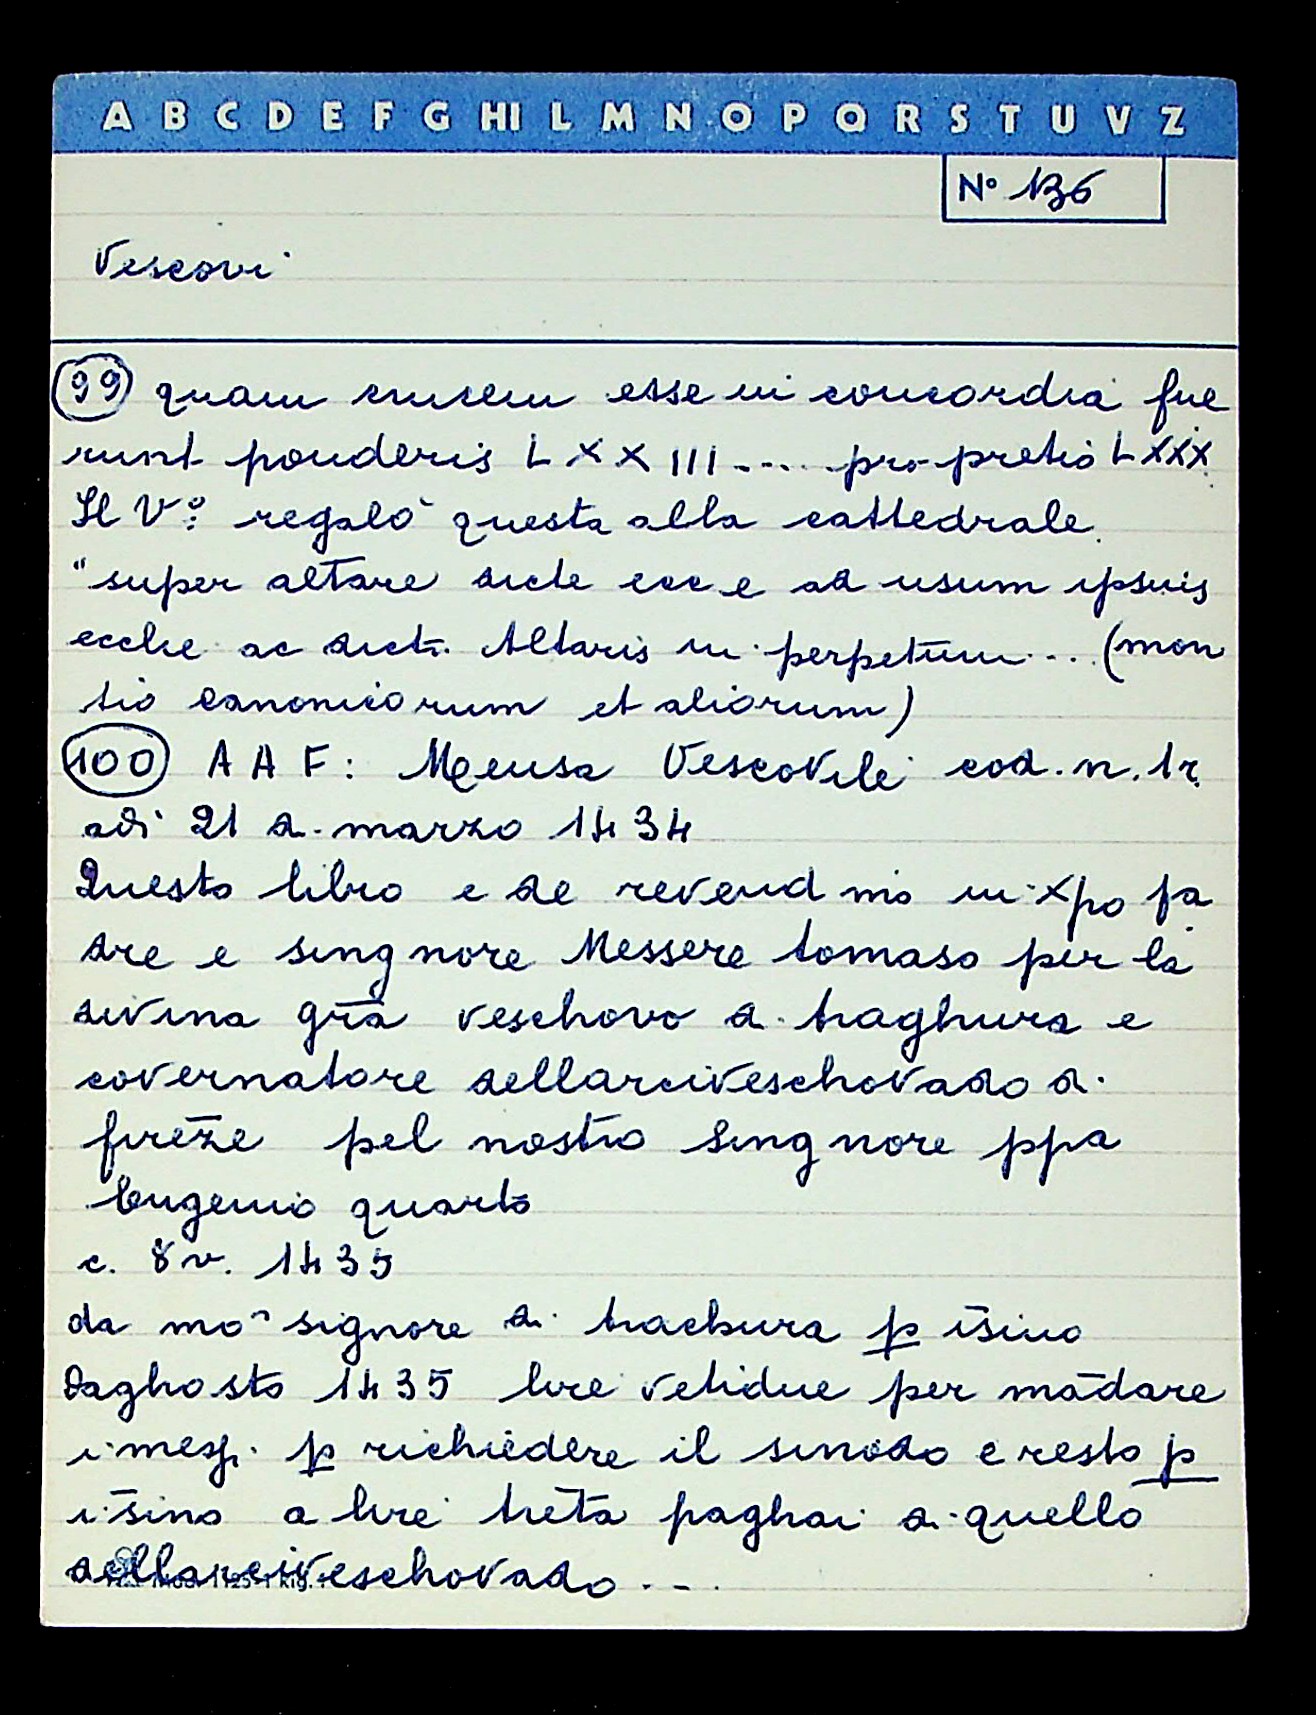 A B C D E F G HI L M N O P Q R S T U V Z
N° 136
Vescovi
99 quam crucem esse in concordia fue
runt ponderis LXXIII .... pro pretio LXXX
Il V° regalò questa alla cattedrale.
"super altare dicte ecc e ad usum ipsuis
ecclie ac dicti Altaris in perpetūm ... (mon
tio canonicorum et aliorum)
100 A A F: Mensa Vescovile cod. n. 1r
adi 21 di marzo 1434
Questo libro e de reverend mo in xpo pa
dre e singnore Messere tomaso per la
divina grā veschovo di traghura e
covernatore dellarciveschovado di
firēze pel nostro Singnore ppa
Eugenio quarto
c. 8v. 1435
da mo signore di trachura p īsino
daghosto 1435 lire vetidue per mādare
i mess. p richiedere il sinodo e resto p
īsino a lire trēta paghai di quello
dellarciveschovado ...